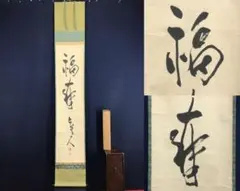 福寿
福
寿